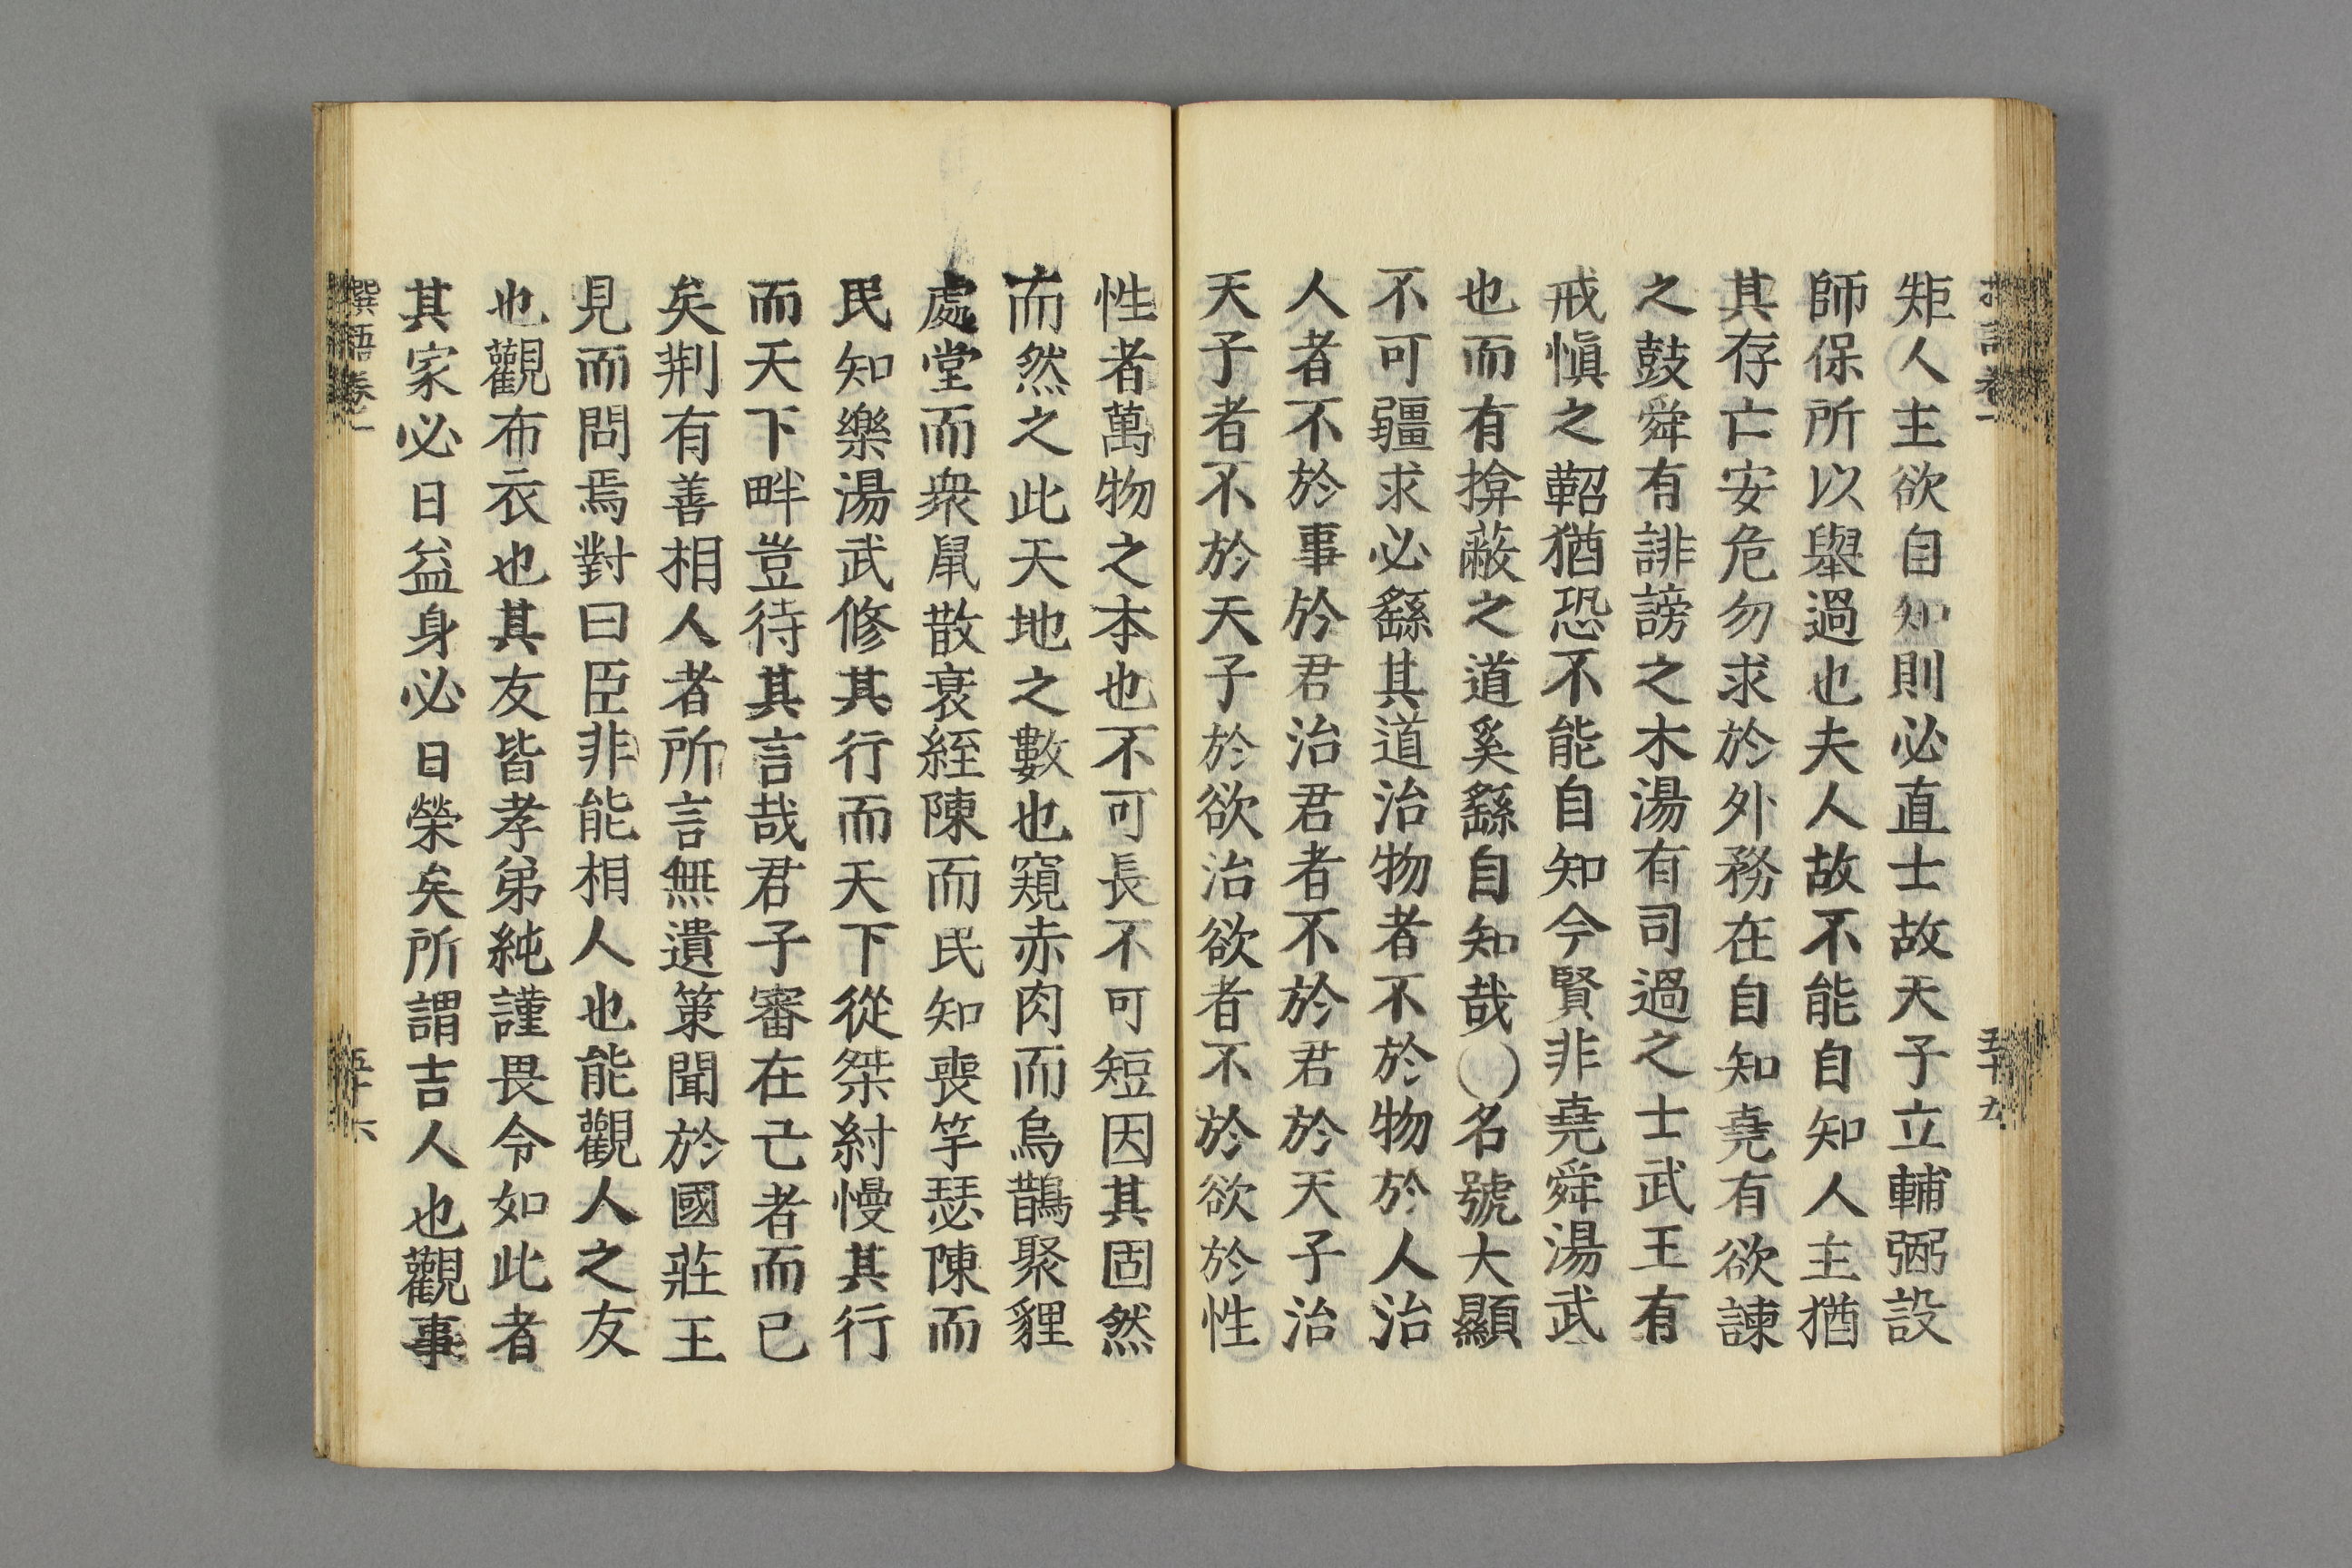 矩人主欲自知則必直士故天子立輔弼設
師保所以舉過也夫人故不能自知人主猶
其存亡安危勿求於外務在自知堯有欲諫
之鼓舜有誹謗之木湯有司過之士武王有
戒愼之鞀猶恐不能自知今賢非堯舜湯武
也而有揜蔽之道奚繇自知哉○名號大顯
不可彊求必繇其道治物者不於物於人治
人者不於事於君治君者不於君於天子治
天子者不於天子於欲治欲者不於欲於性
性者萬物之本也不可長不可短因其固然
而然之此天地之數也窺赤肉而烏鵲聚貍
處堂而衆鼠散衰絰陳而民知喪竽瑟陳而
民知樂湯武修其行而天下從桀紂慢其行
而天下畔豈待其言哉君子審在己者而已
矣荆有善相人者所言無遺策聞於國莊王
見而問焉對曰臣非能相人也能觀人之友
也觀布衣也其友皆孝弟純謹畏令如此者
其家必日益身必日榮矣所謂吉人也觀事
撰語卷一